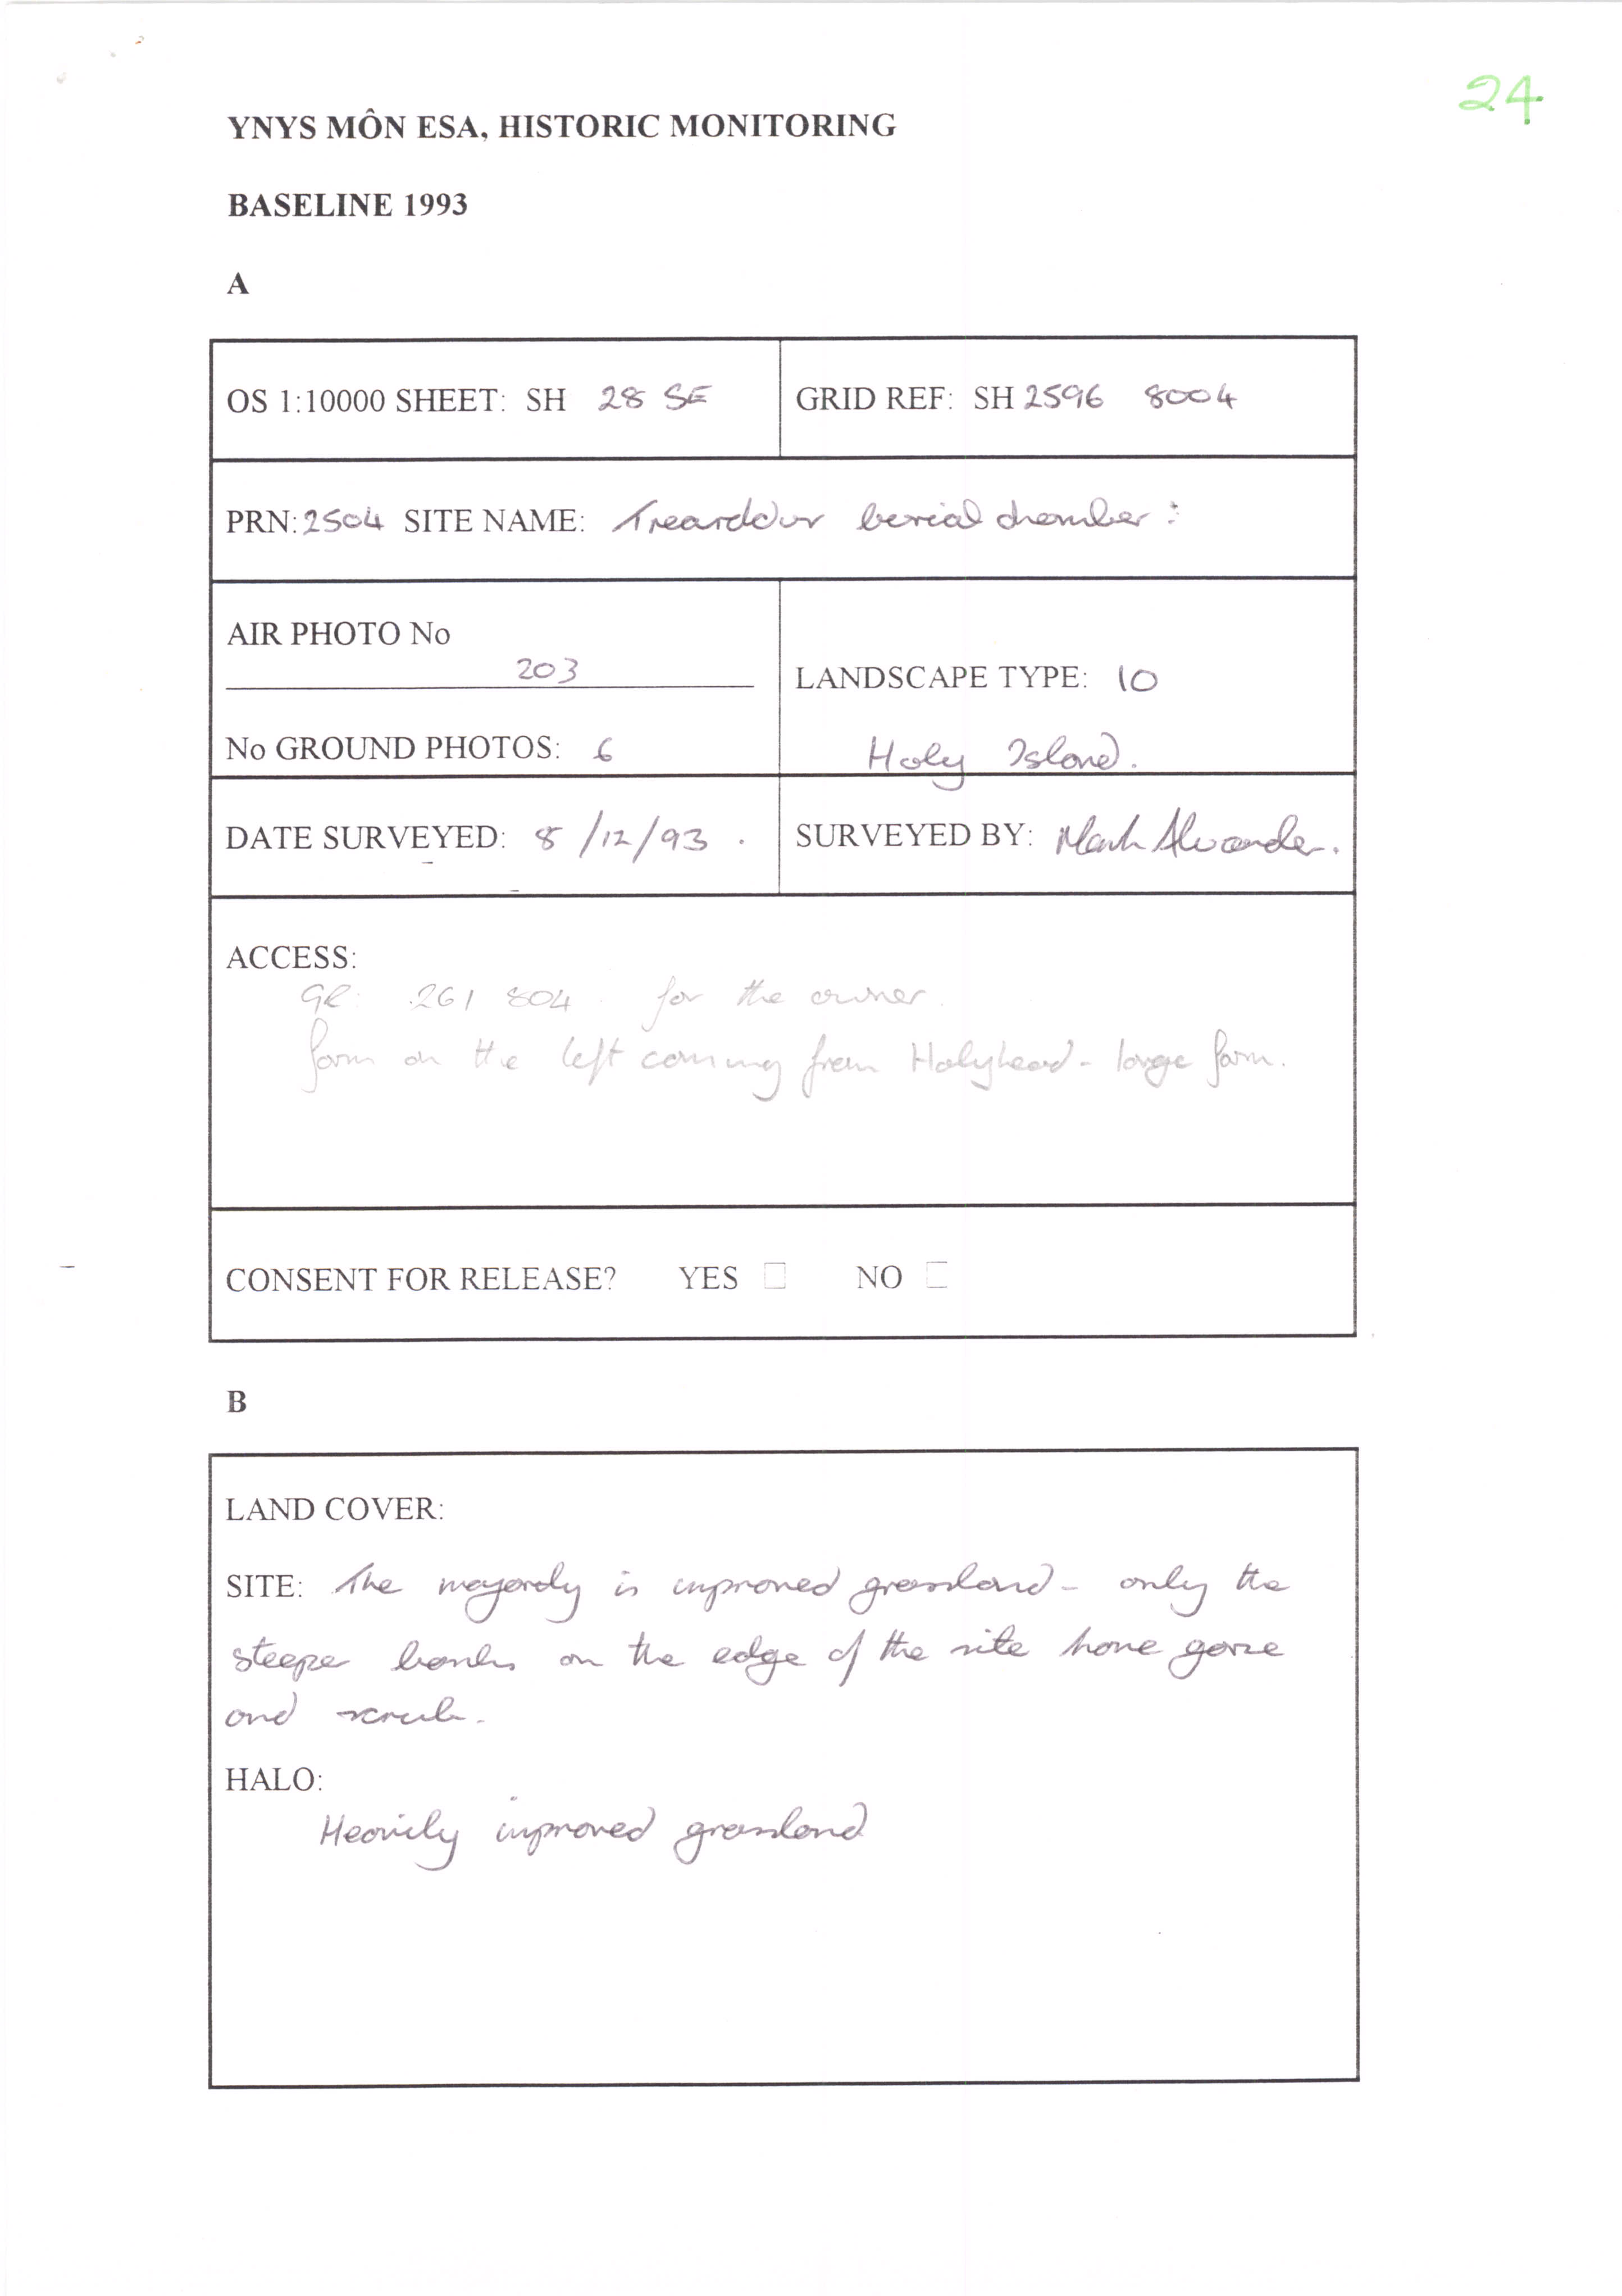 24
YNYS MÔN ESA, HISTORIC MONITORING
BASELINE 1993
A
OS 1:10000 SHEET: SH 28 SE
GRID REF: SH 2596 8004
PRN: 2504 SITE NAME: Trearddur burial chamber :
AIR PHOTO No
203
LANDSCAPE TYPE: 10
No GROUND PHOTOS: 6
Holy Island.
DATE SURVEYED: 8/12/93 .
SURVEYED BY: Mark Alexander.
ACCESS:
GR: 261 804 for the owner.
farm on the left coming from Holyhead - large farm.
CONSENT FOR RELEASE? YES ☐ NO ☐
B
LAND COVER:
SITE: The majority is improved grassland - only the
steeper banks on the edge of the site have gorse
and scrub.
HALO:
Heavily improved grassland